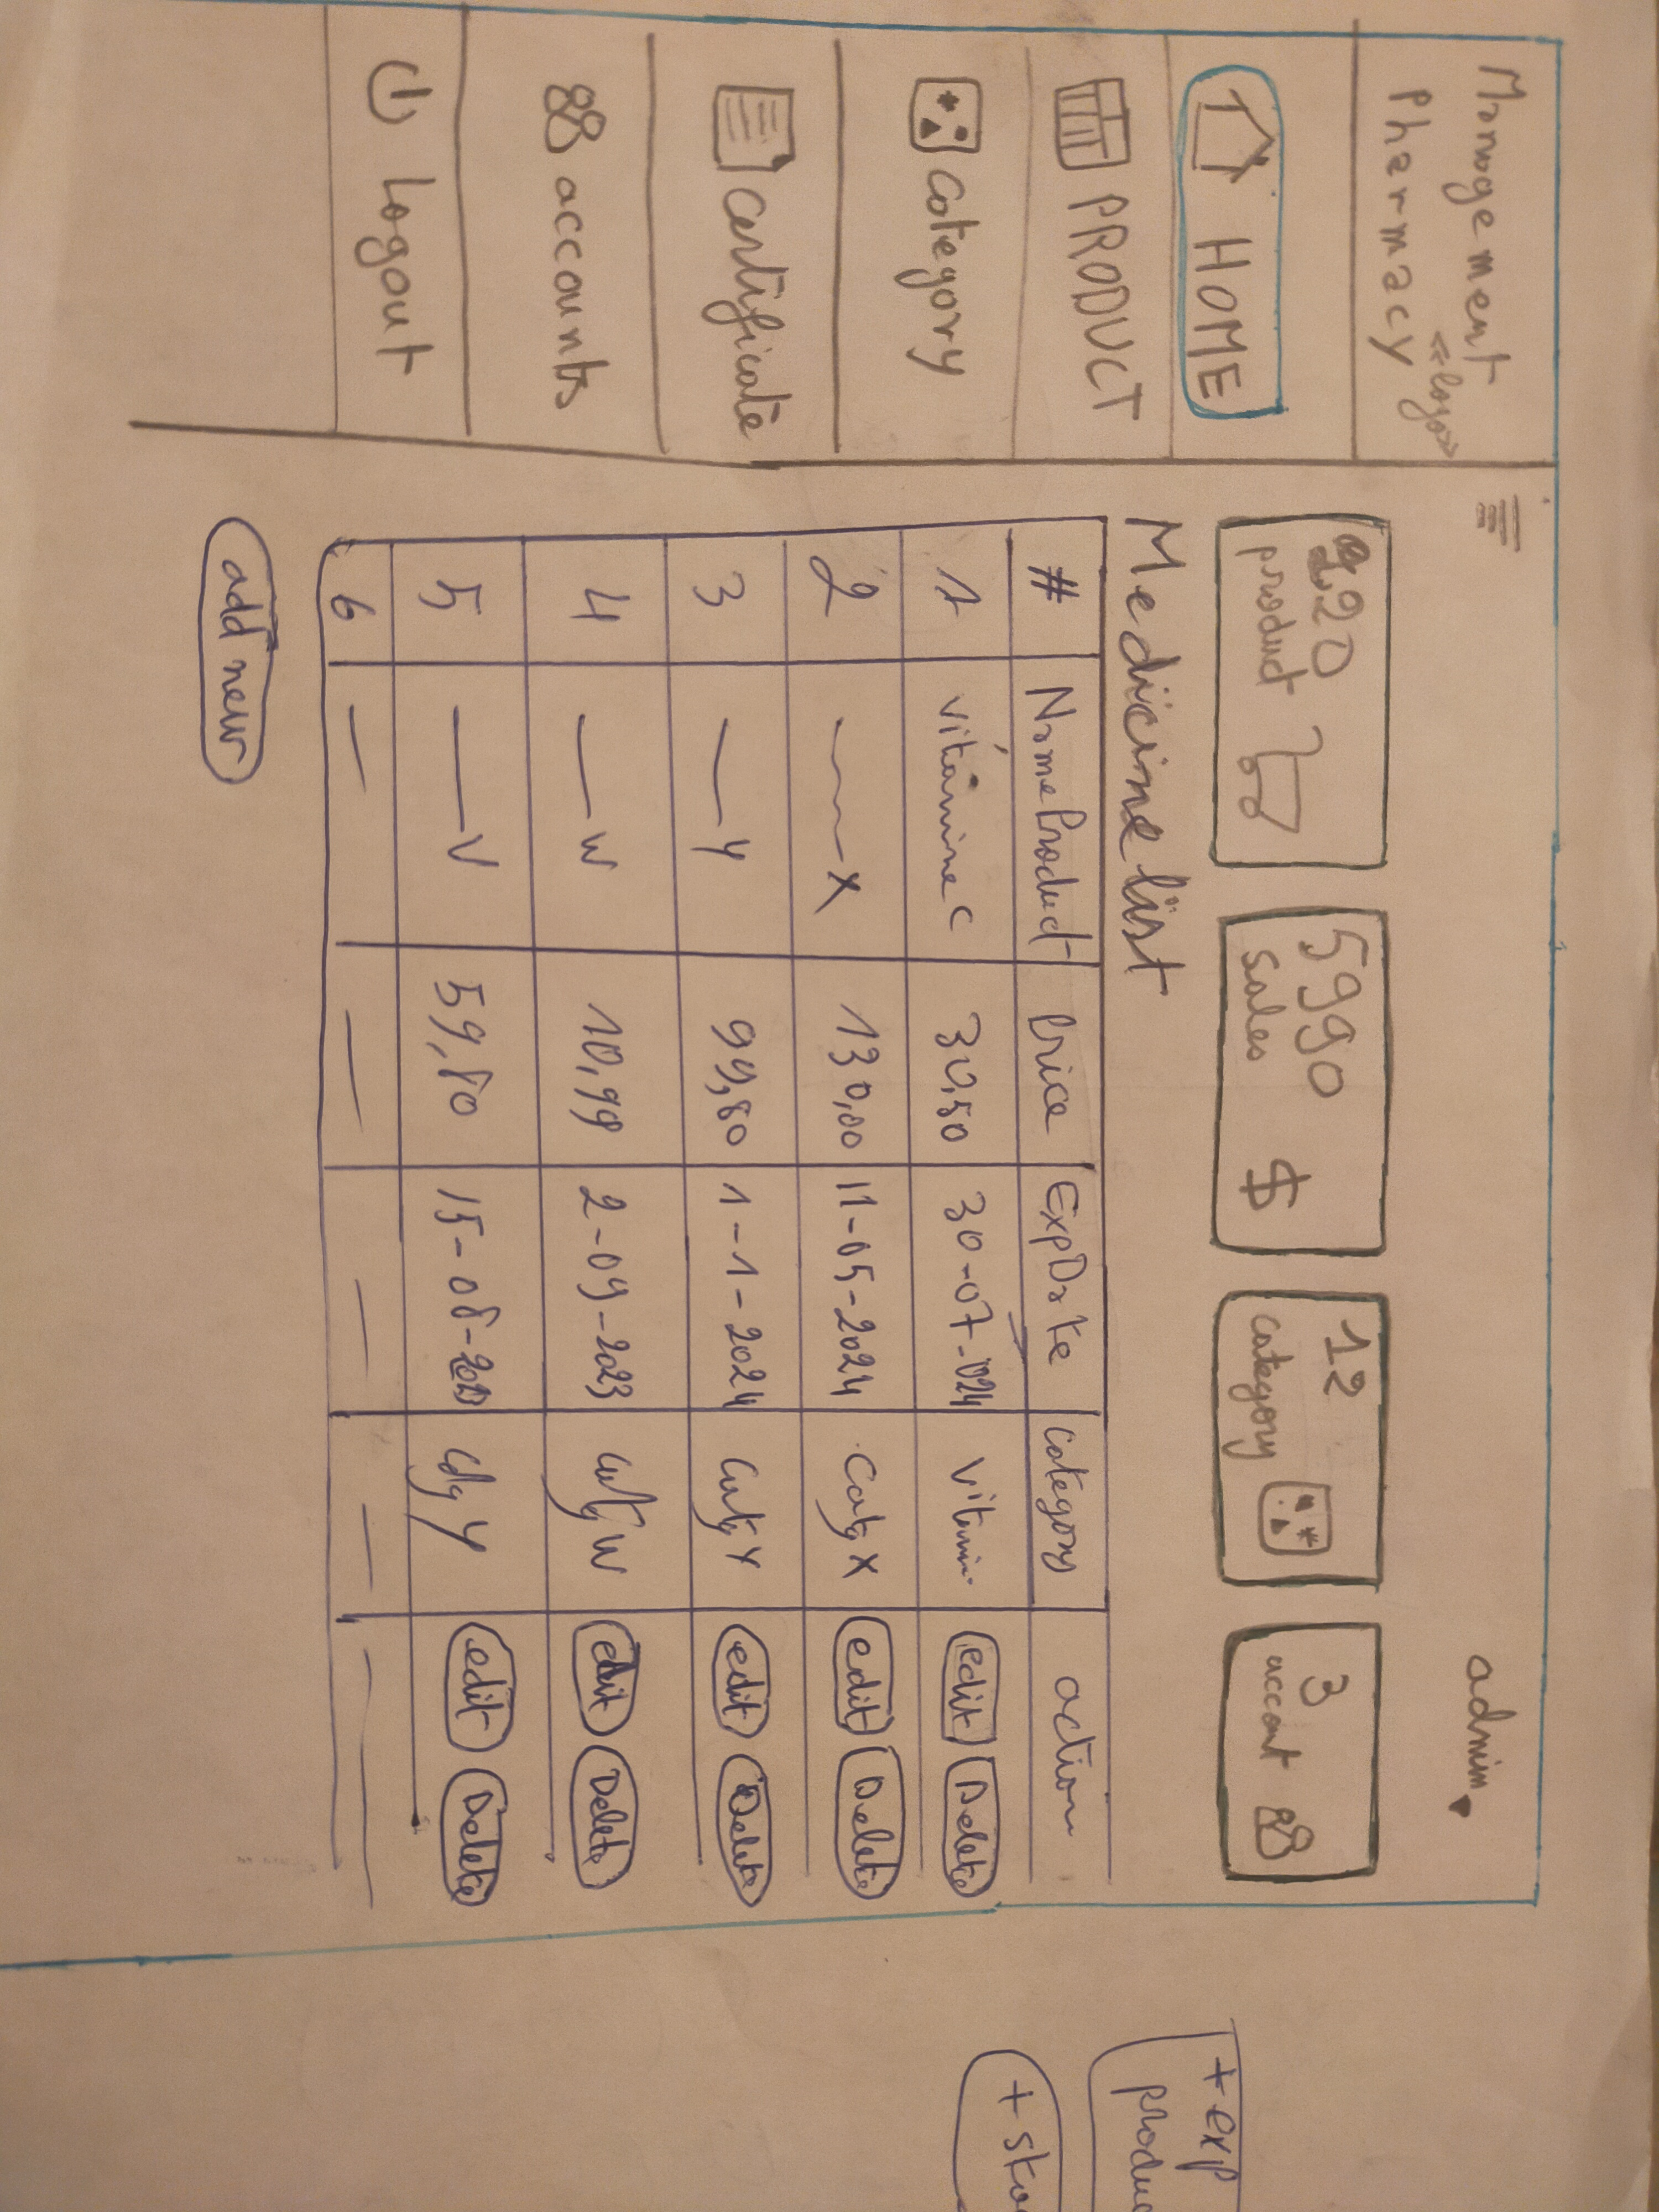 Management
Pharmacy
<<logo>>
HOME
PRODUCT
category
certificate
accounts
Logout
admin
20
product
5990
sales
$
12
category
3
accont
Medicine list
# Name Product Price Exp Date category action
1 vitamine C 30,50 30-07-2024 vitamin edit Delete
2 X 130,00 11-05-2024 Catg X edit Delete
3 y 99,80 1-1-2024 Catg Y edit Delete
4 W 10,99 2-09-2023 Catg W edit Delete
5 V 59,80 15-08-2023 edit Delete
6
add new
+ exp
produc
+ sto